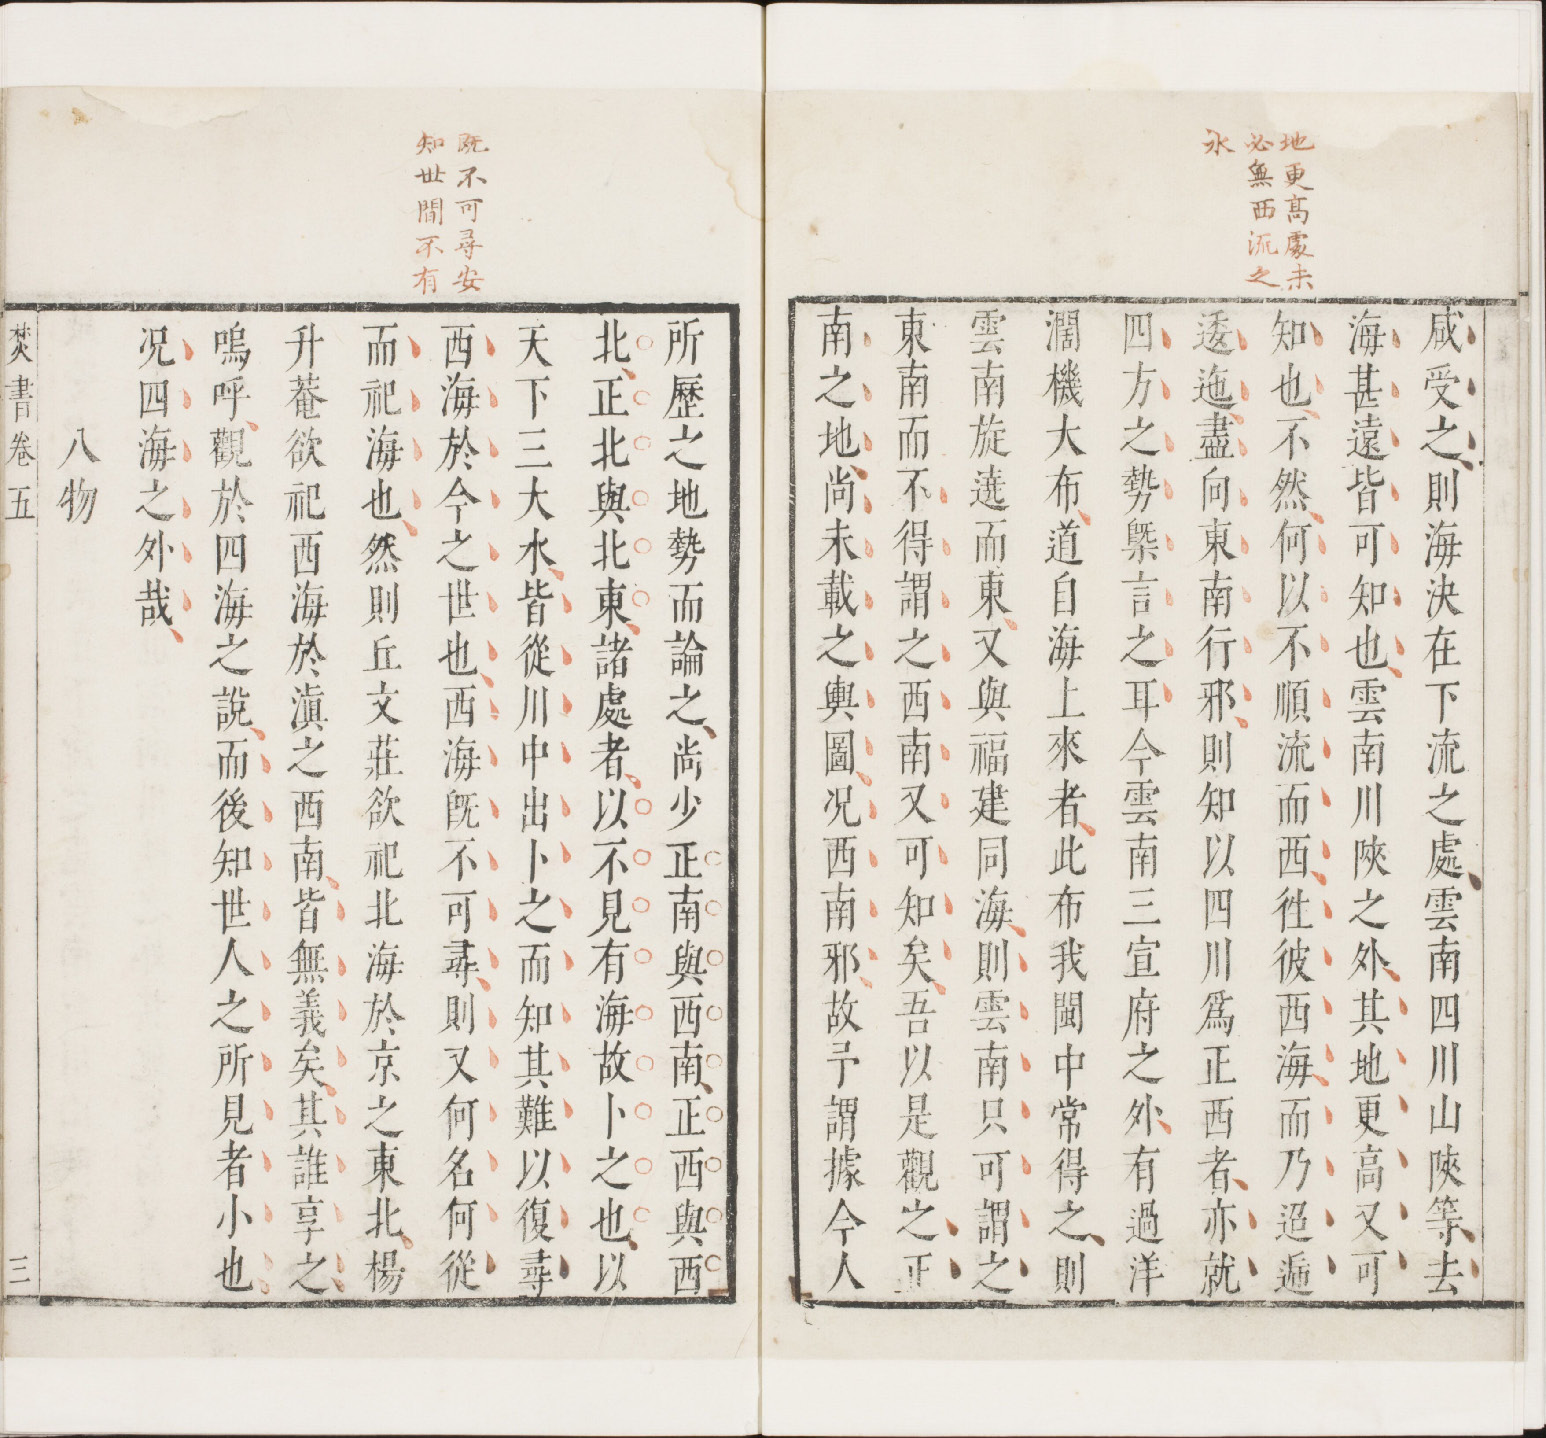 地更高處未
必無西流之
水
咸受之則海決在下流之處雲南四川山陝等去
海甚遠皆可知也雲南川陝之外其地更高又可
知也不然何以不順流而西徃彼西海而乃迢遞
逶迤盡向東南行邪則知以四川爲正西者亦就
四方之勢槩言之耳今雲南三宣府之外有過洋
濶機大布道自海上來者此布我閩中常得之則
雲南旋遶而東又與福建同海則雲南只可謂之
東南而不得謂之西南又可知矣吾以是觀之正
南之地尚未載之輿圖况西南邪故予謂據今人
既不可尋安
知世間不有
所歷之地勢而論之尚少正南與西南正西與西
北正北與北東諸處者以不見有海故卜之也以
天下三大水皆從川中出卜之而知其難以復尋
西海於今之世也西海旣不可尋則又何名何從
而祀海也然則丘文莊欲祀北海於京之東北楊
升菴欲祀西海於滇之西南皆無義矣其誰享之
嗚呼觀於四海之說而後知世人之所見者小也
况四海之外哉
八物
焚書卷五
三